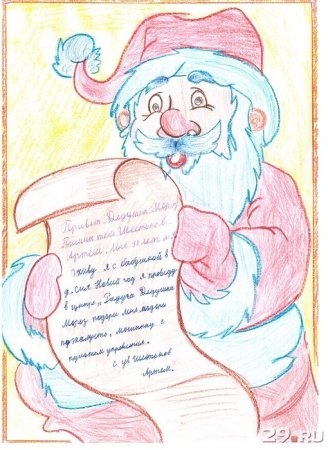 Привет Дедушка Мороз
Пишет тебе Шестаков
Артём. Мне 10 лет
живу я с бабушкой в
д. Сия Новый год я проведу
в центре "Радуга Дедушка
Мороз подари мне модем
пожалуйста, машинку с
пультом управления.
с ув Шестаков
Артём.
29.RU